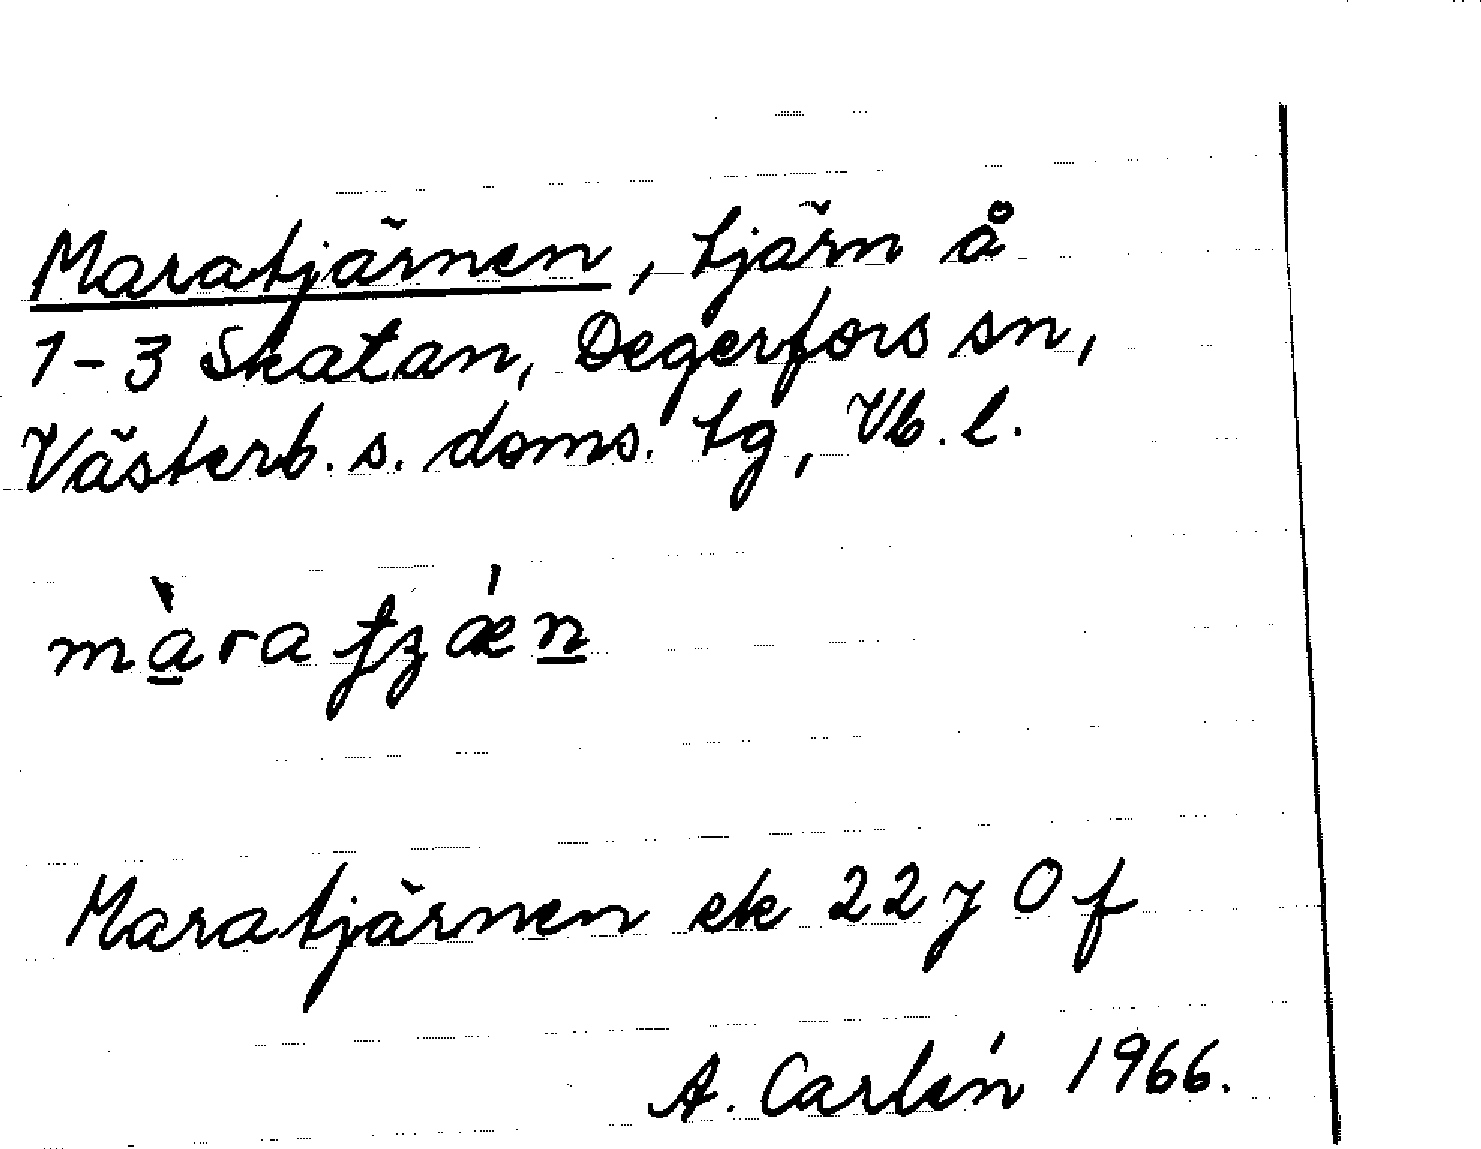 Maratjärnen, tjärn å
1-3 Skatan, Degerfors sn,
Västerb. s. doms. tg, Vb. l.
màra ʈʒǽn
Maratjärnen ek 22 j 0 f
A. Carlén 1966.